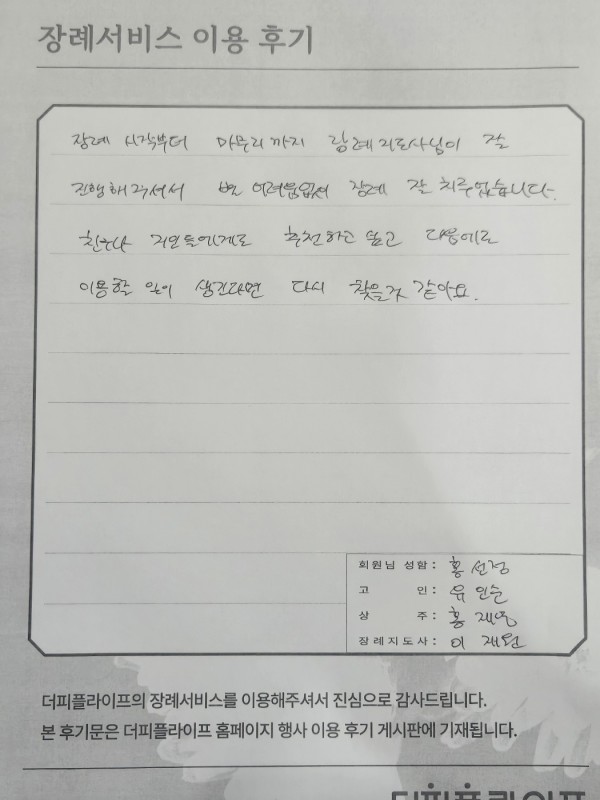 장례서비스 이용 후기
장례 시작부터 마무리까지 장례지도사님이 잘
진행해주셔서 별 어려움없이 장례 잘 치루었습니다.
친구나 지인들에게도 추천하고 싶고 다음에도
이용할 일이 생긴다면 다시 찾을것 같아요.
회원님 성함: 홍선정
고 인: 유인순
상 주: 홍재
장례지도사: 이재원
더피플라이프의 장례서비스를 이용해주셔서 진심으로 감사드립니다.
본 후기문은 더피플라이프 홈페이지 행사 이용 후기 게시판에 기재됩니다.
더피플라이프